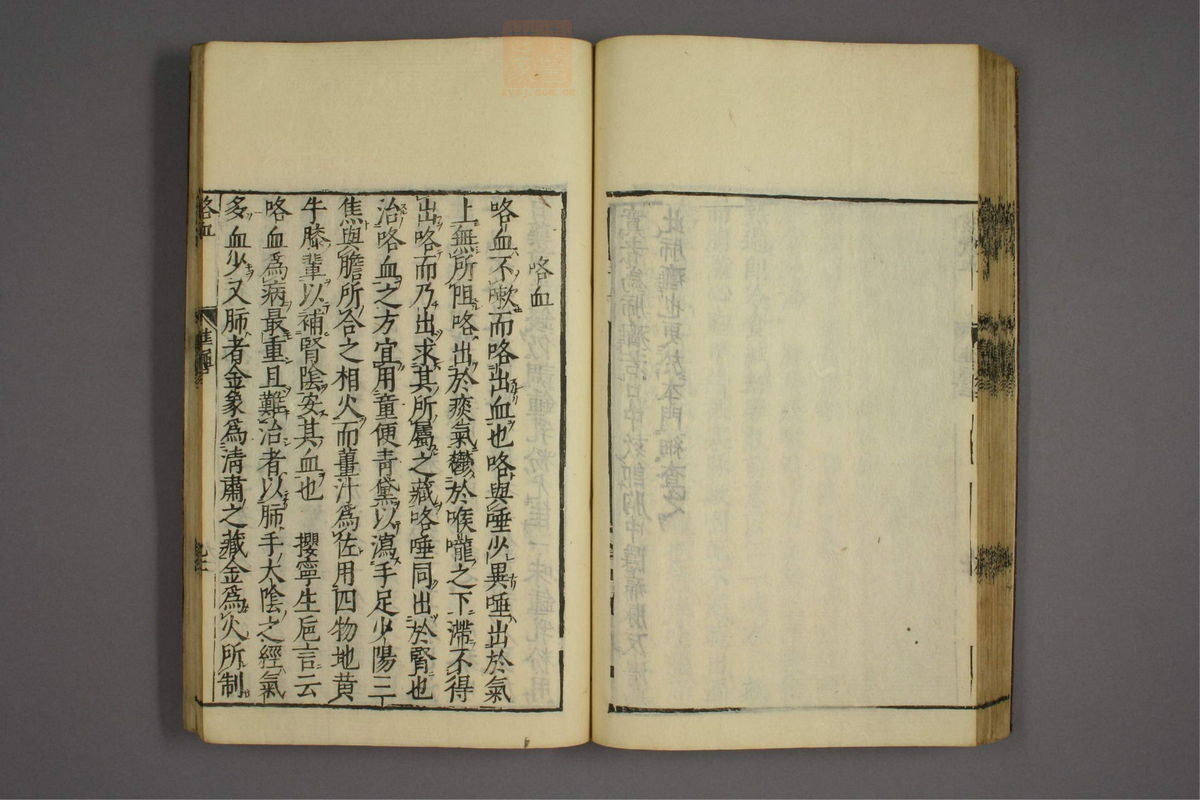 咯血
咯血不嗽而咯出血也咯與唾少異唾出於氣
上無所阻咯出於痰氣鬱於喉嚨之下滯不得
出咯而乃出求其所屬之藏咯唾同出於腎也
治咯血之方宜用童便青黛以瀉手足少陽三
焦與膽所合之相火而薑汁為佐用四物地黄
牛膝輩以補腎陰安其血也 攖寧生巵言云
咯血爲病最重且難治者以肺手太陰之經氣
多血少又肺者金象爲清肅之藏金爲火所制
咯血